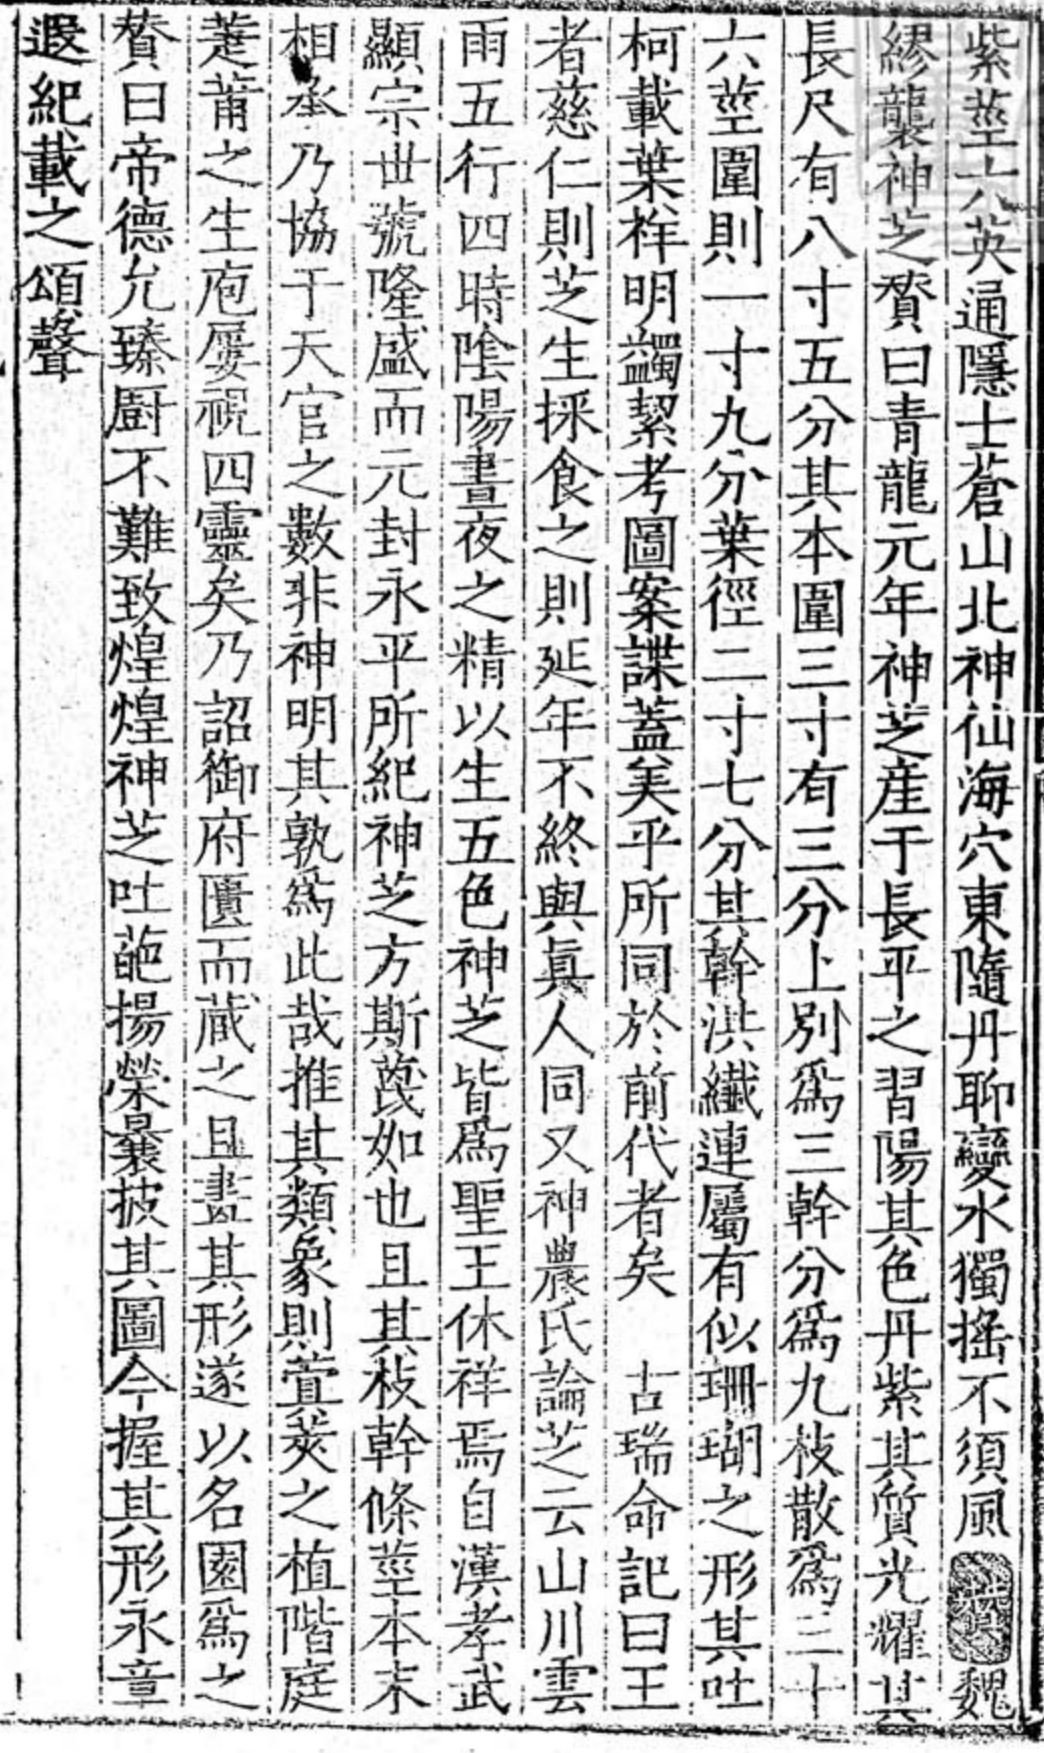 紫莖六英通隱士蒼山北神仙海穴東隨丹聊變水獨搖不須風贊魏
繆襲神芝贊曰青龍元年神芝産于長平之習陽其色丹紫其質光耀其
長尺有八寸五分其本圍三寸有三分上別爲三幹分爲九枝散爲三十
六莖圍則一寸九分葉徑二寸七分其幹洪纖連屬有似珊瑚之形其吐
柯載葉祥明蠲絜考圖案諜蓋美乎所同於前代者矣 古瑞命記曰王
者慈仁則芝生採食之則延年不終與眞人同又神農氏論芝云山川雲
雨五行四時陰陽晝夜之精以生五色神芝皆爲聖王休祥焉自漢孝武
顯宗世號隆盛而元封永平所紀神芝方斯蔑如也且其枝幹條莖本末
相承乃協于天官之數非神明其孰爲此哉推其類象則蓂莢之植階庭
萐莆之生庖屢視四靈矣乃詔御府匱而蔵之且畫其形遂以名園爲之
贊曰帝德允臻厨不難致煌煌神芝吐葩揚榮曩披其圖今握其形永章
遐紀載之頌聲